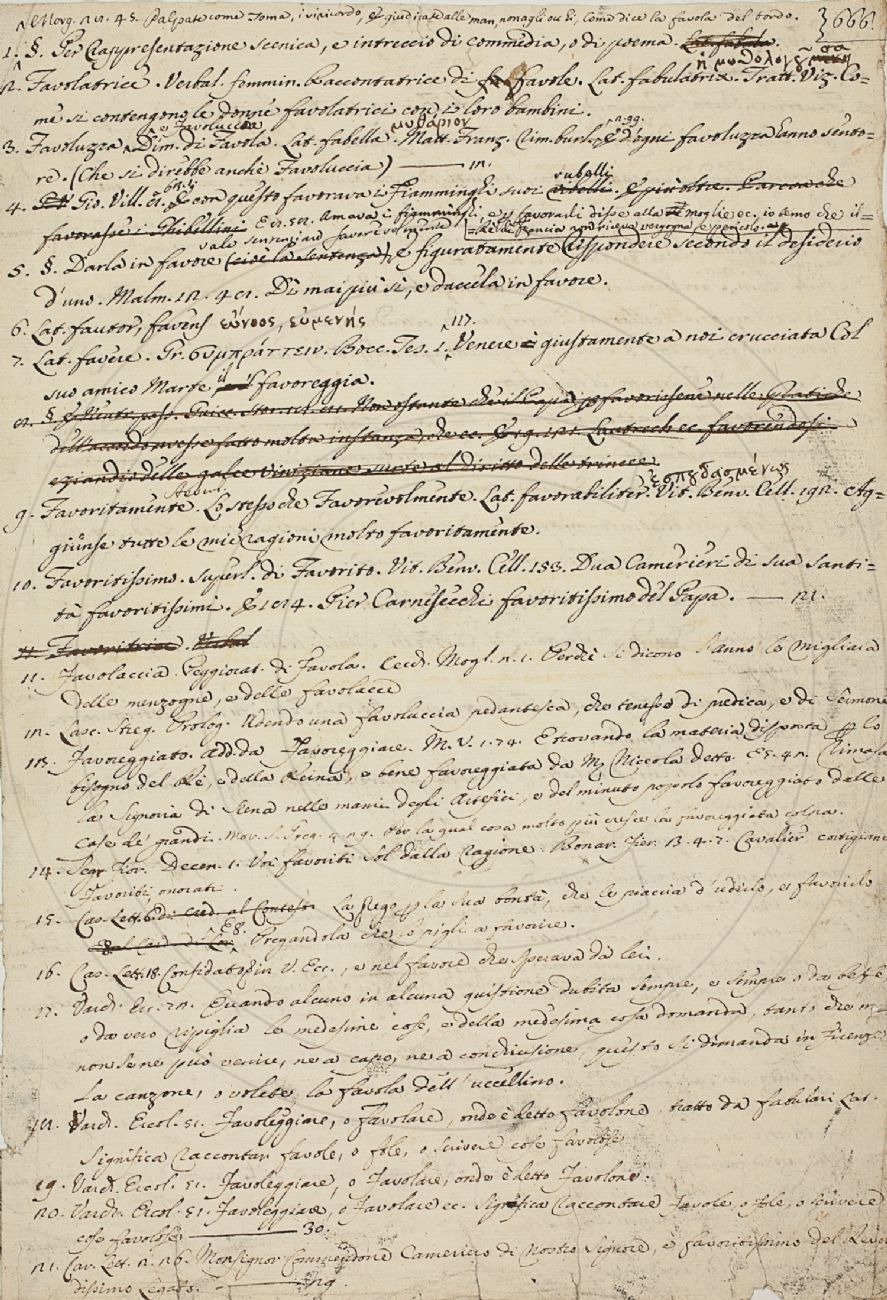 Morg. 19. 45. Palpate come Toma, i vi ricordo, E giudicate alle man, non agli occhi, Come dice la favola del tordo.
3666.
1. §. Per Rappresentazione scenica, e intreccio di commedia, o di poema. Lat. fabula.
2. Favolatrice. Verbal. femmin. Raccontatrice di favole. Lat. fabulatrix. ἡ μυθολογοῦσα Tratt. Virg. Co=
me si contengono le donne favolatrici con i loro bambini.
3. Favoluzza, e Favoluccia Dim. di Favola. Lat. fabella. μυθάριον Matt. Franz. Rim. burl. 2. 99. E d'ogni favoluzza hanno sento=
re. (Che si direbbe anche Favoluccia)
4. Gio. Vill. E con questo favorava i Fiamminghi suoi rubelli
favorasse i Ghibellini. Amava i fiamminghi e favorarli disse alla moglie ec. io temo che il
5. §. Darla in favore (cioè la sentenza) vale sentenziare favorevolmente, e figuratamente Rispondere secondo il desiderio
d'uno. Malm. Di mai più sì, e daccela in favore.
6. Lat. fautor, favens εὔνοος, εὐμενής
7. Lat. favere. Gr. συμπράττειν. Bocc. Tes. 1. 117. Venere è giustamente a noi crucciata Col
suo amico Marte il favoreggia.
8. §. Non ostante che il Papa favorissene nelle
dell'accordo avesse fatto molta instanza, che ec. Lautrech ec. favorendosi
eziandio delle galee Viniziane messe al diritto delle trincee
9. Favoritamente. Avverb. Lo stesso che Favorevolmente. Lat. favorabiliter. ἐσπουδασμένως Vit. Benv. Cell. 192. Ag=
giunse tutte le mie ragioni molto favoritamente.
10. Favoritissimo. Superl. di Favorito. Vit. Benv. Cell. 153. Dua Camerieri di sua Santi=
tà favoritissimi. Pier Carnesecchi favoritissimo del Papa.
11. Favoritrice. Verbal
11. Favolaccia. Peggiorat. di Favola. Cecch. Mogl. 2. 1. Perchè si dicono l'anno le migliaia
delle menzogne, e delle favolacce
12. Lasc. Streg. Prolog. Udendo una favoluccia pedantesca, che tenesse di predica, e di sermone
13. Favoreggiato. Add. da Favoreggiare. M. V. 1. 74. E trovando la materia disposta per lo
bisogno del Re, e della Reina, e bene favoreggiata da M. Niccola detto. E 5. 42. Rimasa
la Signoria di Siena nelle mani degli Artefici, e del minuto popolo favoreggiato dalle
case de' grandi. Mor. S. Greg. Per la qual cosa molto più cresce la favoreggiata colpa.
14. Segr. Fior. Decen. 1. Voi favoriti sol dalla Ragione. Bonar. Fier. 3. 4. 7. Cavalier cortigiani
Favoriti, onorati.
15. Car. Lett. La prego per la sua bontà, che le piaccia d'udirlo, e favorirlo
E 8. Pregandola che lo pigli a favorire.
16. Car. Lett. 18. Confidato in V. Ecc., e nel favore che sperava da lei.
17. Varch. Erc. Quando alcuno in alcuna quistione dubita sempre, e sempre o da beffe
o da vero ripiglia le medesime cose, e della medesima cosa domanda, tanto che
non se ne può venire, nè a capo, nè a conclusione, questo si dimanda in Firenze
La canzone, o volete la favola dell'uccellino.
18. Varch. Ercol. 51. Favoleggiare, o Favolare, onde è detto favolone tratto da fabulari Lat.
Significa Raccontar favole, o fole, o scrivere cose favolose
19. Varch. Ercol. 51. Favoleggiare, o Favolare, onde è detto Favolone.
20. Varch. Ercol. 51. Favoleggiare, o Favolare ec. Significa Raccontare Favole, o fole, o scrivere
cose favolose. 30.
21. Car. Lett. 2. 26. Monsignor Commendone Cameriero di Nostro Signore, e favoritissimo del Reve
dissimo Legato. 29.